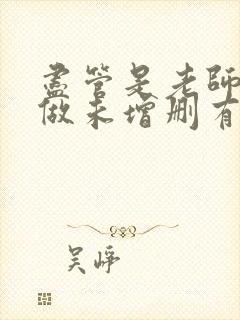 盡管是老師
做未增刪有
吴崢